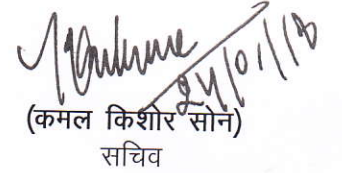 24/01/18
(कमल किशोर सोन)
सचिव